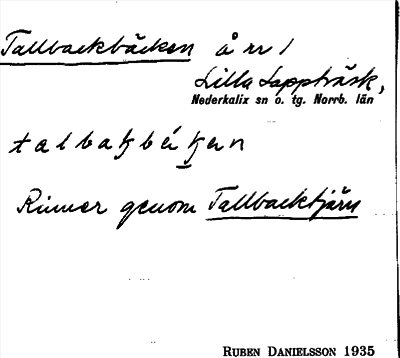 Tallbackbäcken å nr 1
Lilla Lappträsk,
Nederkalix sn o. tg. Norrb. län
Rinner genom Tallbacktjärn
RUBEN DANIELSSON 1935